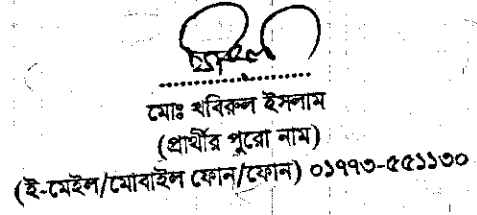 মোঃ খবিরুল ইসলাম
(প্রার্থীর পুরো নাম)
(ই-মেইল/মোবাইল ফোন/ফোন) ০১৭৭৩-৫৫১১৩০